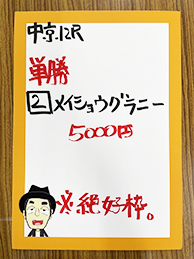 中京.12R
単勝
2 メイショウグラニー
5000円
※絶好枠。